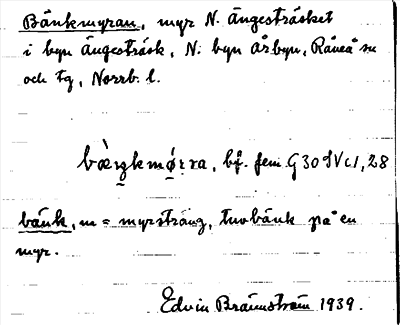 Bänkmyran, myr N. Ängesträsket
i byn Ängesträsk, N. byn Årbyn, Råneå sn
och tg, Norrb. l.
bf. fem. G 30 SV c1, 28
bänk, m = myrsträng, tuvbänk på en
myr.
Edvin Brännström 1939.